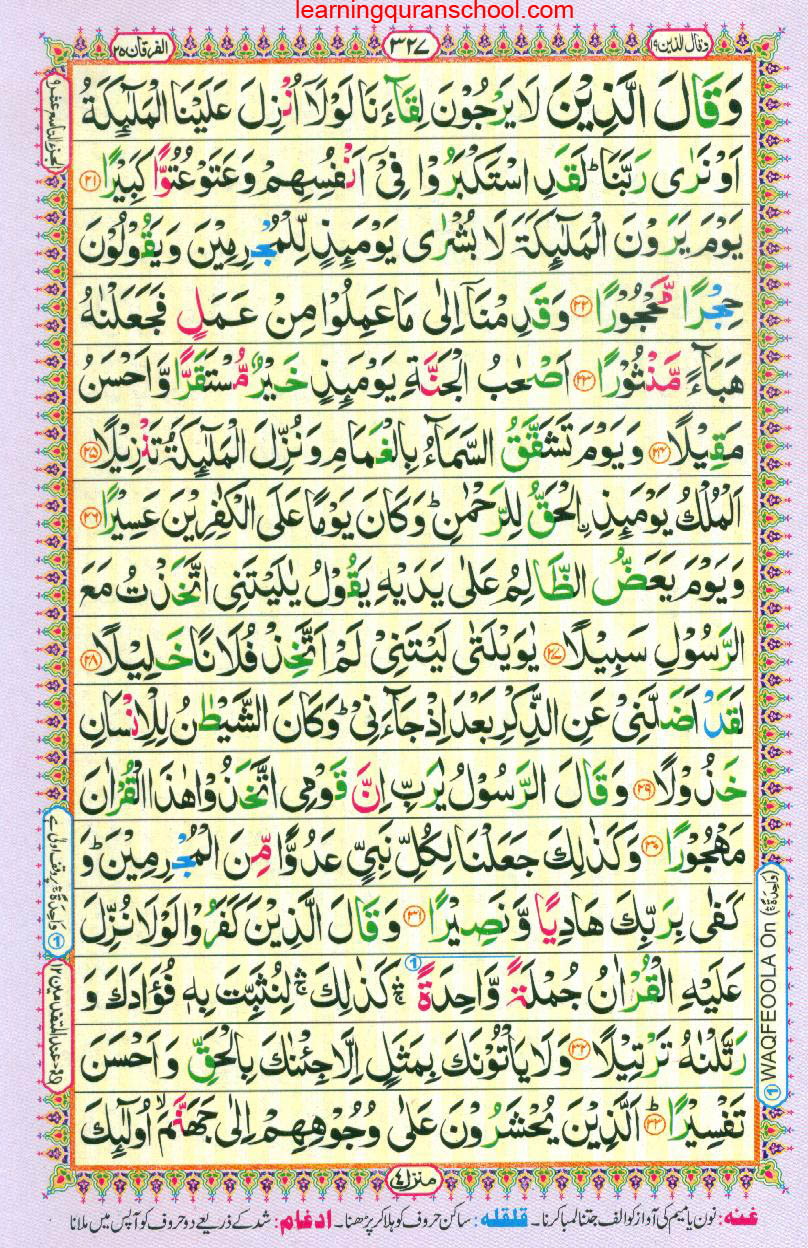 learningquranschool.com
وقال الذین ۱۹
۳۲۷
الفرقان ۲۵
وَقَالَ الَّذِیْنَ لَا یَرْجُوْنَ لِقَآءَنَا لَوْلَاۤ اُنْزِلَ عَلَیْنَا الْمَلٰٓئِكَةُ
اَوْ نَرٰی رَبَّنَا ؕ لَقَدِ اسْتَكْبَرُوْا فِیْۤ اَنْفُسِهِمْ وَعَتَوْ عُتُوًّا كَبِیْرًا ۟۲۱
یَوْمَ یَرَوْنَ الْمَلٰٓئِكَةَ لَا بُشْرٰی یَوْمَىِٕذٍ لِّلْمُجْرِمِیْنَ وَیَقُوْلُوْنَ
حِجْرًا مَّحْجُوْرًا ۟۲۲ وَقَدِمْنَاۤ اِلٰی مَا عَمِلُوْا مِنْ عَمَلٍ فَجَعَلْنٰهُ
هَبَآءً مَّنْثُوْرًا ۟۲۳ اَصْحٰبُ الْجَنَّةِ یَوْمَىِٕذٍ خَیْرٌ مُّسْتَقَرًّا وَّاَحْسَنُ
مَقِیْلًا ۟۲۴ وَیَوْمَ تَشَقَّقُ السَّمَآءُ بِالْغَمَامِ وَنُزِّلَ الْمَلٰٓئِكَةُ تَنْزِیْلًا ۟۲۵
اَلْمُلْكُ یَوْمَىِٕذِ ِ۟الْحَقُّ لِلرَّحْمٰنِ ؕ وَكَانَ یَوْمًا عَلَی الْكٰفِرِیْنَ عَسِیْرًا ۟۲۶
وَیَوْمَ یَعَضُّ الظَّالِمُ عَلٰی یَدَیْهِ یَقُوْلُ یٰلَیْتَنِی اتَّخَذْتُ مَعَ
الرَّسُوْلِ سَبِیْلًا ۟۲۷ یٰوَیْلَتٰی لَیْتَنِیْ لَمْ اَتَّخِذْ فُلَانًا خَلِیْلًا ۟۲۸
لَقَدْ اَضَلَّنِیْ عَنِ الذِّكْرِ بَعْدَ اِذْ جَآءَنِیْ ؕ وَكَانَ الشَّیْطٰنُ لِلْاِنْسَانِ
خَذُوْلًا ۟۲۹ وَقَالَ الرَّسُوْلُ یٰرَبِّ اِنَّ قَوْمِی اتَّخَذُوْا هٰذَا الْقُرْاٰنَ
مَهْجُوْرًا ۟۳۰ وَكَذٰلِكَ جَعَلْنَا لِكُلِّ نَبِیٍّ عَدُوًّا مِّنَ الْمُجْرِمِیْنَ ؕ وَ
كَفٰی بِرَبِّكَ هَادِیًا وَّنَصِیْرًا ۟۳۱ وَقَالَ الَّذِیْنَ كَفَرُوْا لَوْلَا نُزِّلَ
عَلَیْهِ الْقُرْاٰنُ جُمْلَةً وَّاحِدَةً ۛۚ ① كَذٰلِكَ ۛۚ لِنُثَبِّتَ بِهٖ فُؤَادَكَ وَ
رَتَّلْنٰهُ تَرْتِیْلًا ۟۳۲ وَلَا یَاْتُوْنَكَ بِمَثَلٍ اِلَّا جِئْنٰكَ بِالْحَقِّ وَاَحْسَنَ
تَفْسِیْرًا ۟ؕ۳۳ اَلَّذِیْنَ یُحْشَرُوْنَ عَلٰی وُجُوْهِهِمْ اِلٰی جَهَنَّمَ ۙ اُولٰٓىِٕكَ
الجزء التاسع عشر ۱۹
① وَاحِدَةً ۛۚ پر وقف اولیٰ ہے
① WAQFEOOLA On (وَاحِدَةً ۛۚ)
منزل ۴
غنہ: نون یا میم کی آواز کو الف جتنا لمبا کرنا۔ قلقلہ: ساکن حروف کو ہلا کر پڑھنا۔ ادغام: شد کے ذریعے دو حروف کو آپس میں ملانا